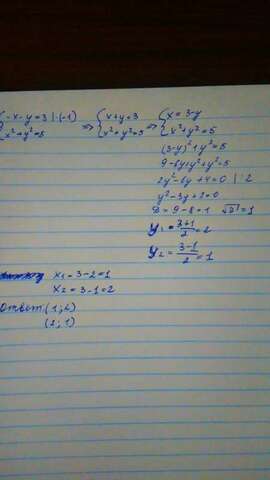 {-x-y=3 |·(-1) => {x+y=3 => {x=3-y
x²+y²=5 x²+y²=5 x²+y²=5
(3-y)²+y²=5
9-6y+y²+y²=5
2y²-6y+4=0 |:2
y²-3y+2=0
D=9-8=1 √D=1
y₁=(3+1)/2=2
y₂=(3-1)/2=1
x₁=3-2=1
x₂=3-1=2
Ответ (1;2)
(2;1)